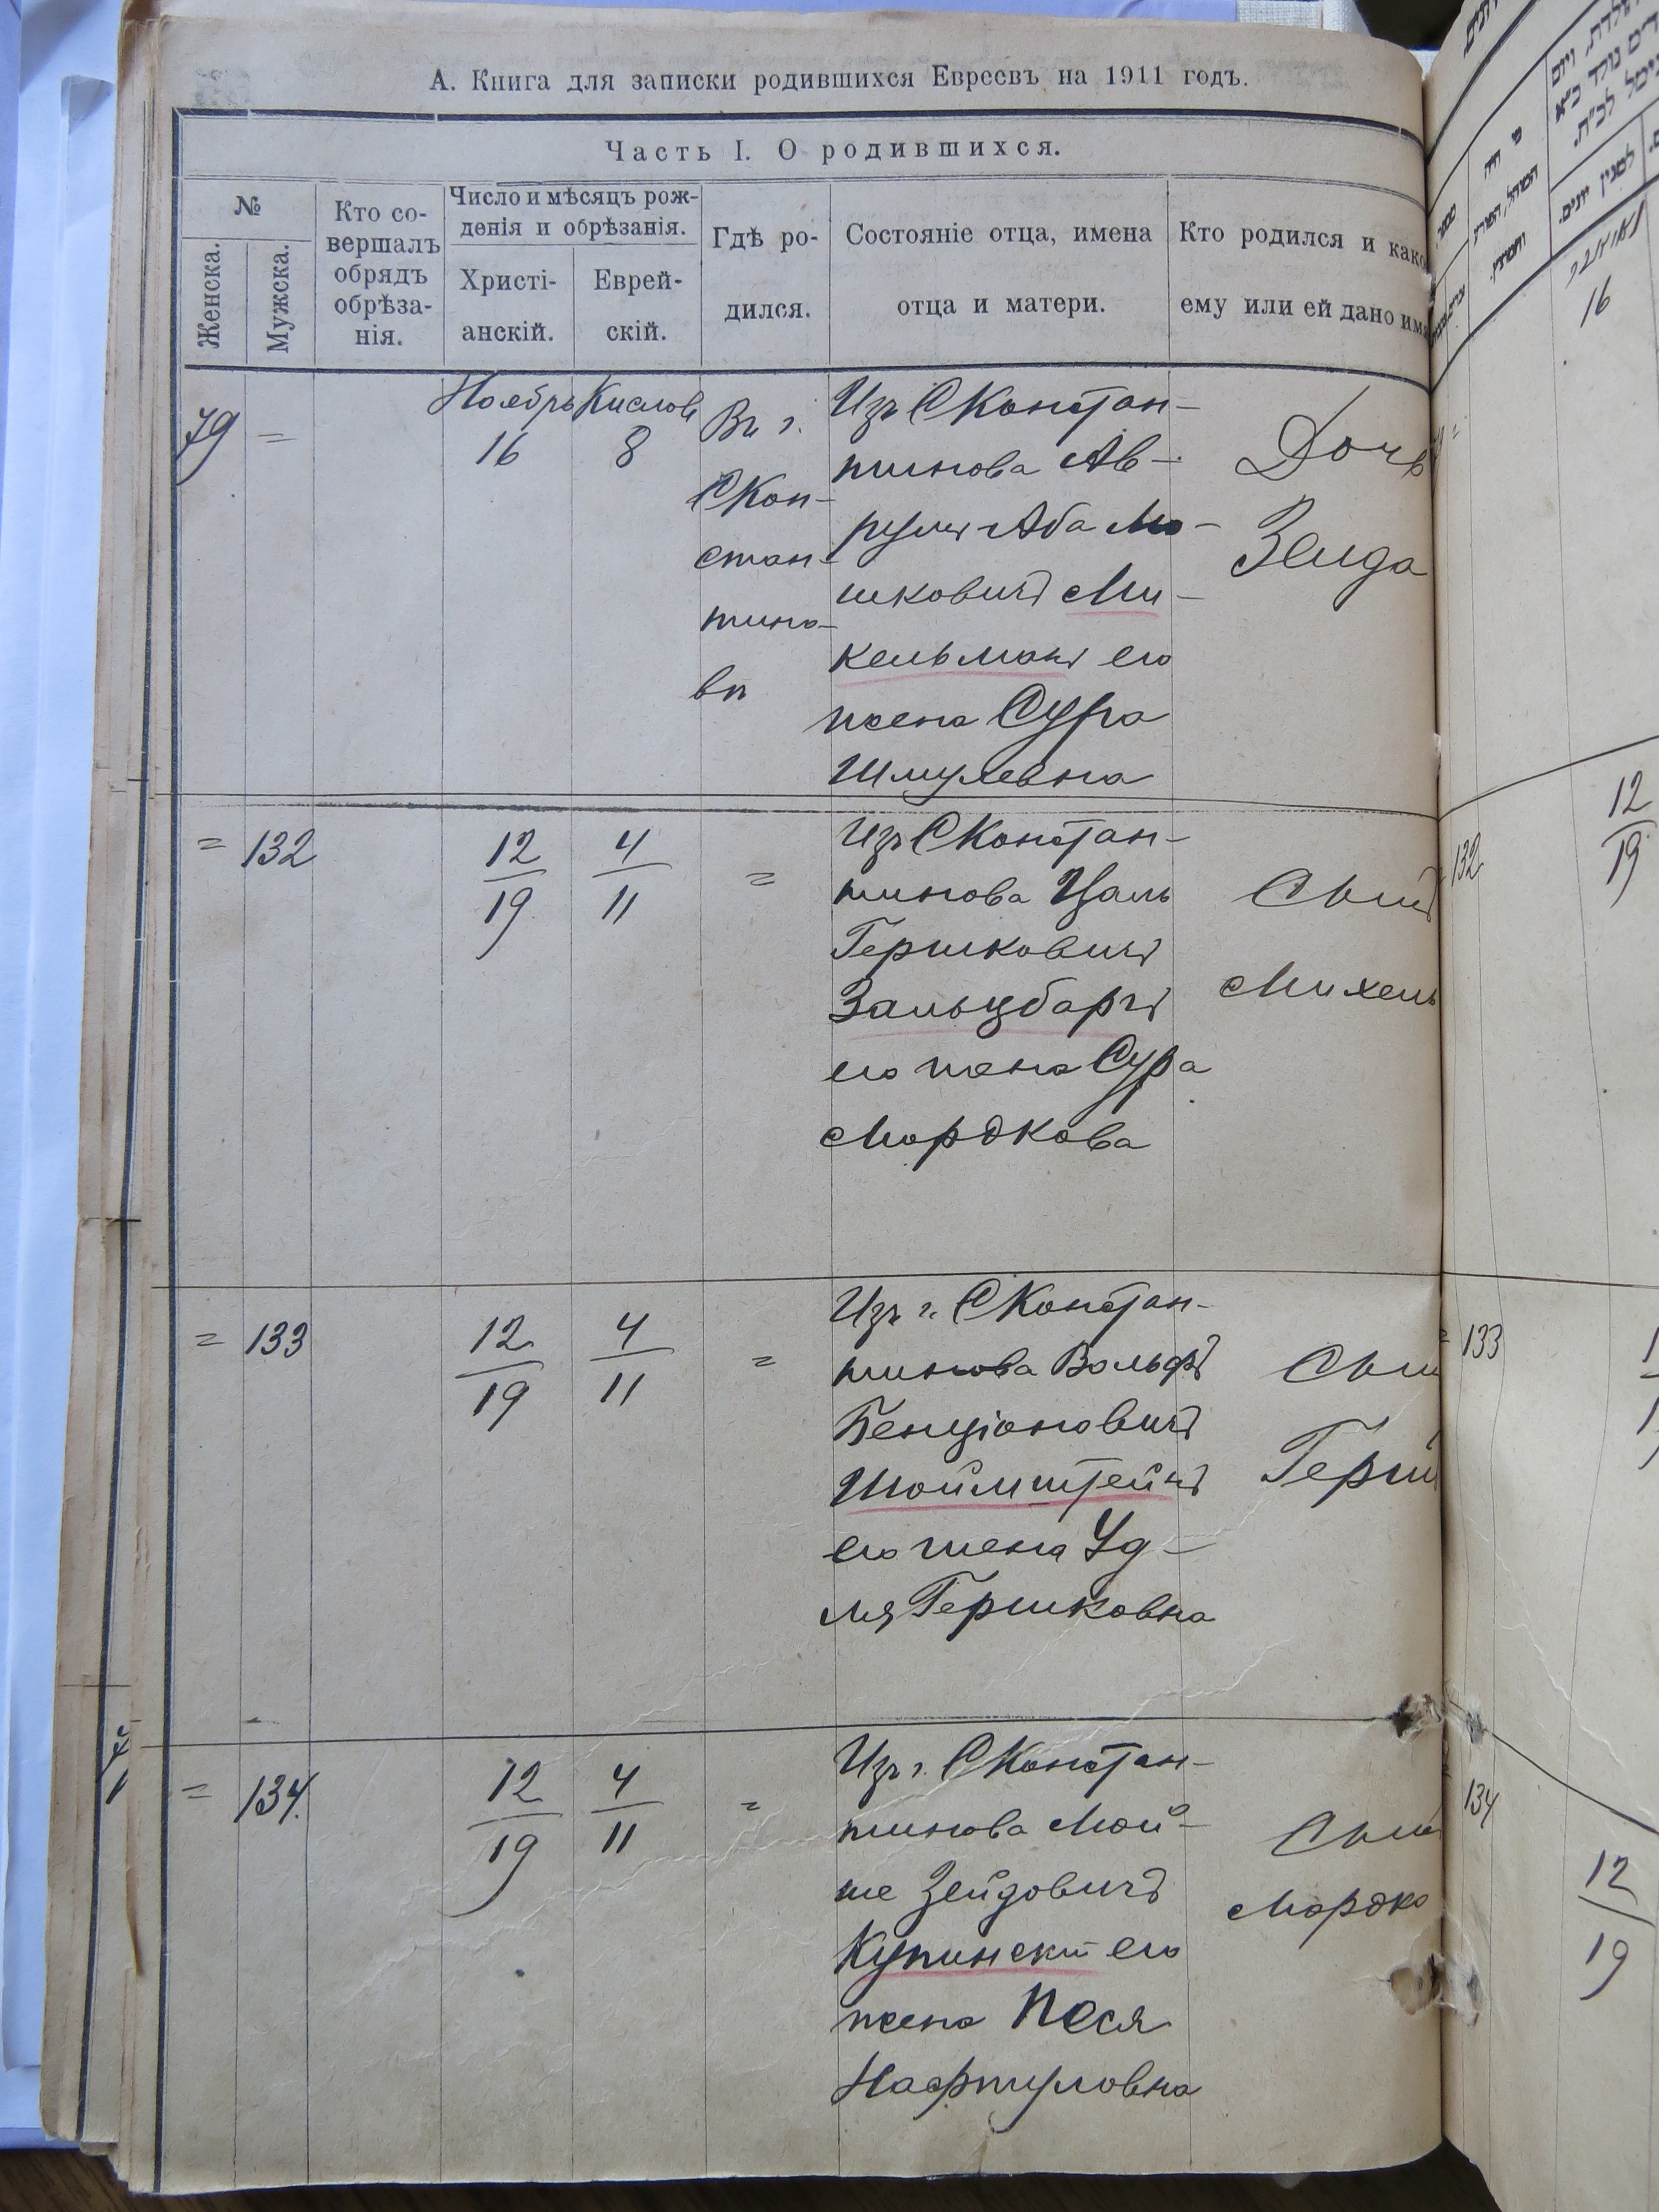 А. Книга для записки родившихся Евреевъ на 1911 годъ.
Часть I. О родившихся.
№
Женска.
Мужска.
Кто со-
вершалъ
обрядъ
обрѣза-
нія.
Число и мѣсяцъ рож-
денія и обрѣзанія.
Христі-
анскій.
Еврей-
скій.
Гдѣ ро-
дился.
Состояніе отца, имена
отца и матери.
Кто родился и како
ему или ей дано имя
79 =
Ноябрь
16
Кислов
8
Въ г.
СКон-
стан-
тино-
вѣ
Изъ СКонстан-
тинова Ав-
румъ Аба Мо-
шковичъ Ми-
кельманъ его
жена Сура
Шмулевна
Дочь
Зелда
= 132
12
19
4
11
=
Изъ СКонстан-
тинова Цаль
Гершковичъ
Зальцбаргъ
его жена Сура
Мордкова
Сынъ
Михель
= 133
12
19
4
11
=
Изъ г. СКонстан-
тинова Вольфъ
Бенціоновичъ
Шоймштейнъ
его жена Уд-
ля Гершковна
Сын
Герш
= 134.
12
19
4
11
=
Изъ г. СКонстан-
тинова Мой-
ше Зейдовичъ
Купинскій его
жена Песя
Нафтуловна
Сын
Мордко
16
132
12
19
133
134
12
19